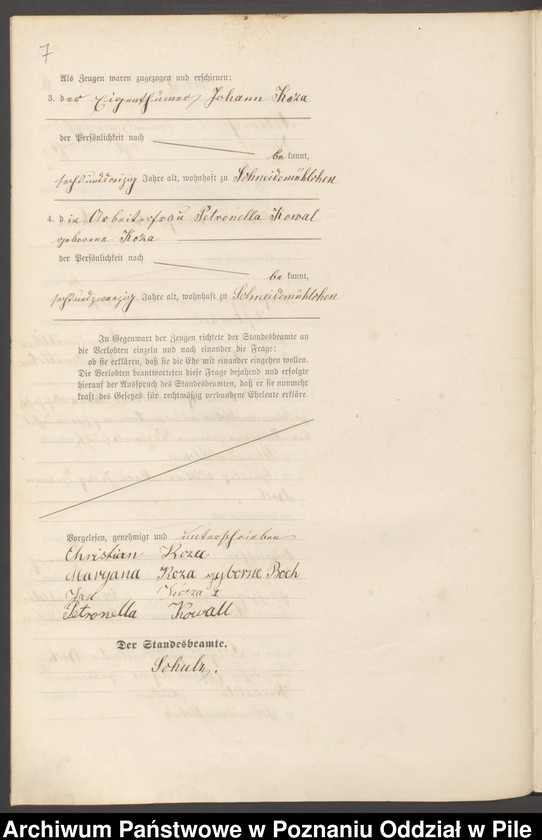 7
Als Zeugen waren zugezogen und erschienen:
3. der Eigenthümer Johann Koza
der Persönlichkeit nach
bekannt,
sechsunddreizig Jahre alt, wohnhaft zu Schneidemühlchen
4. die Arbeiterfrau Petronella Kowal
geborene Koza
der Persönlichkeit nach
bekannt,
sechsundzwanzig Jahre alt, wohnhaft zu Schneidemühlchen
In Gegenwart der Zeugen richtete der Standesbeamte an
die Verlobten einzeln und nach einander die Frage:
ob sie erklären, daß sie die Ehe mit einander eingehen wollen.
Die Verlobten beantworteten diese Frage bejahend und erfolgte
hierauf der Ausspruch des Standesbeamten, daß er sie nunmehr
kraft des Gesetzes für rechtmäßig verbundene Eheleute erkläre.
Vorgelesen, genehmigt und unterschrieben
Christian Koza
Maryana Koza gyborne Boch
Jan Koza
Petronella Kowall
Der Standesbeamte.
Schulz.
Archiwum Państwowe w Poznaniu Oddział w Pile